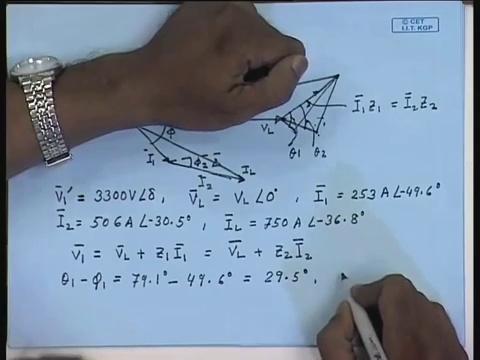 © CET
I.I.T. KGP
Ī₁Z₁ = Ī₂Z₂
V_L
θ₁ θ₂
φ
Ī₁
φ₂
I₂
I_L
V̄₁' = 3300V∠δ, V̄_L = V_L∠0°, Ī₁ = 253 A∠-49.6°
Ī₂ = 506 A∠-30.5°, Ī_L = 750 A∠-36.8°
V̄₁ = V̄_L + Z₁Ī₁ = V̄_L + Z₂Ī₂
θ₁ - φ₁ = 79.1° - 49.6° = 29.5°,